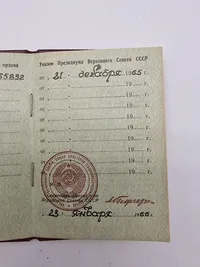 ордена
65832
Указом Президиума Верховного Совета СССР
от 21 декабря 1965 г.
от 19 г.
от 19 г.
от 19 г.
от 19 г.
от 19 г.
от 19 г.
от 19 г.
Верховного Совета СССР
23 января 1966 г.